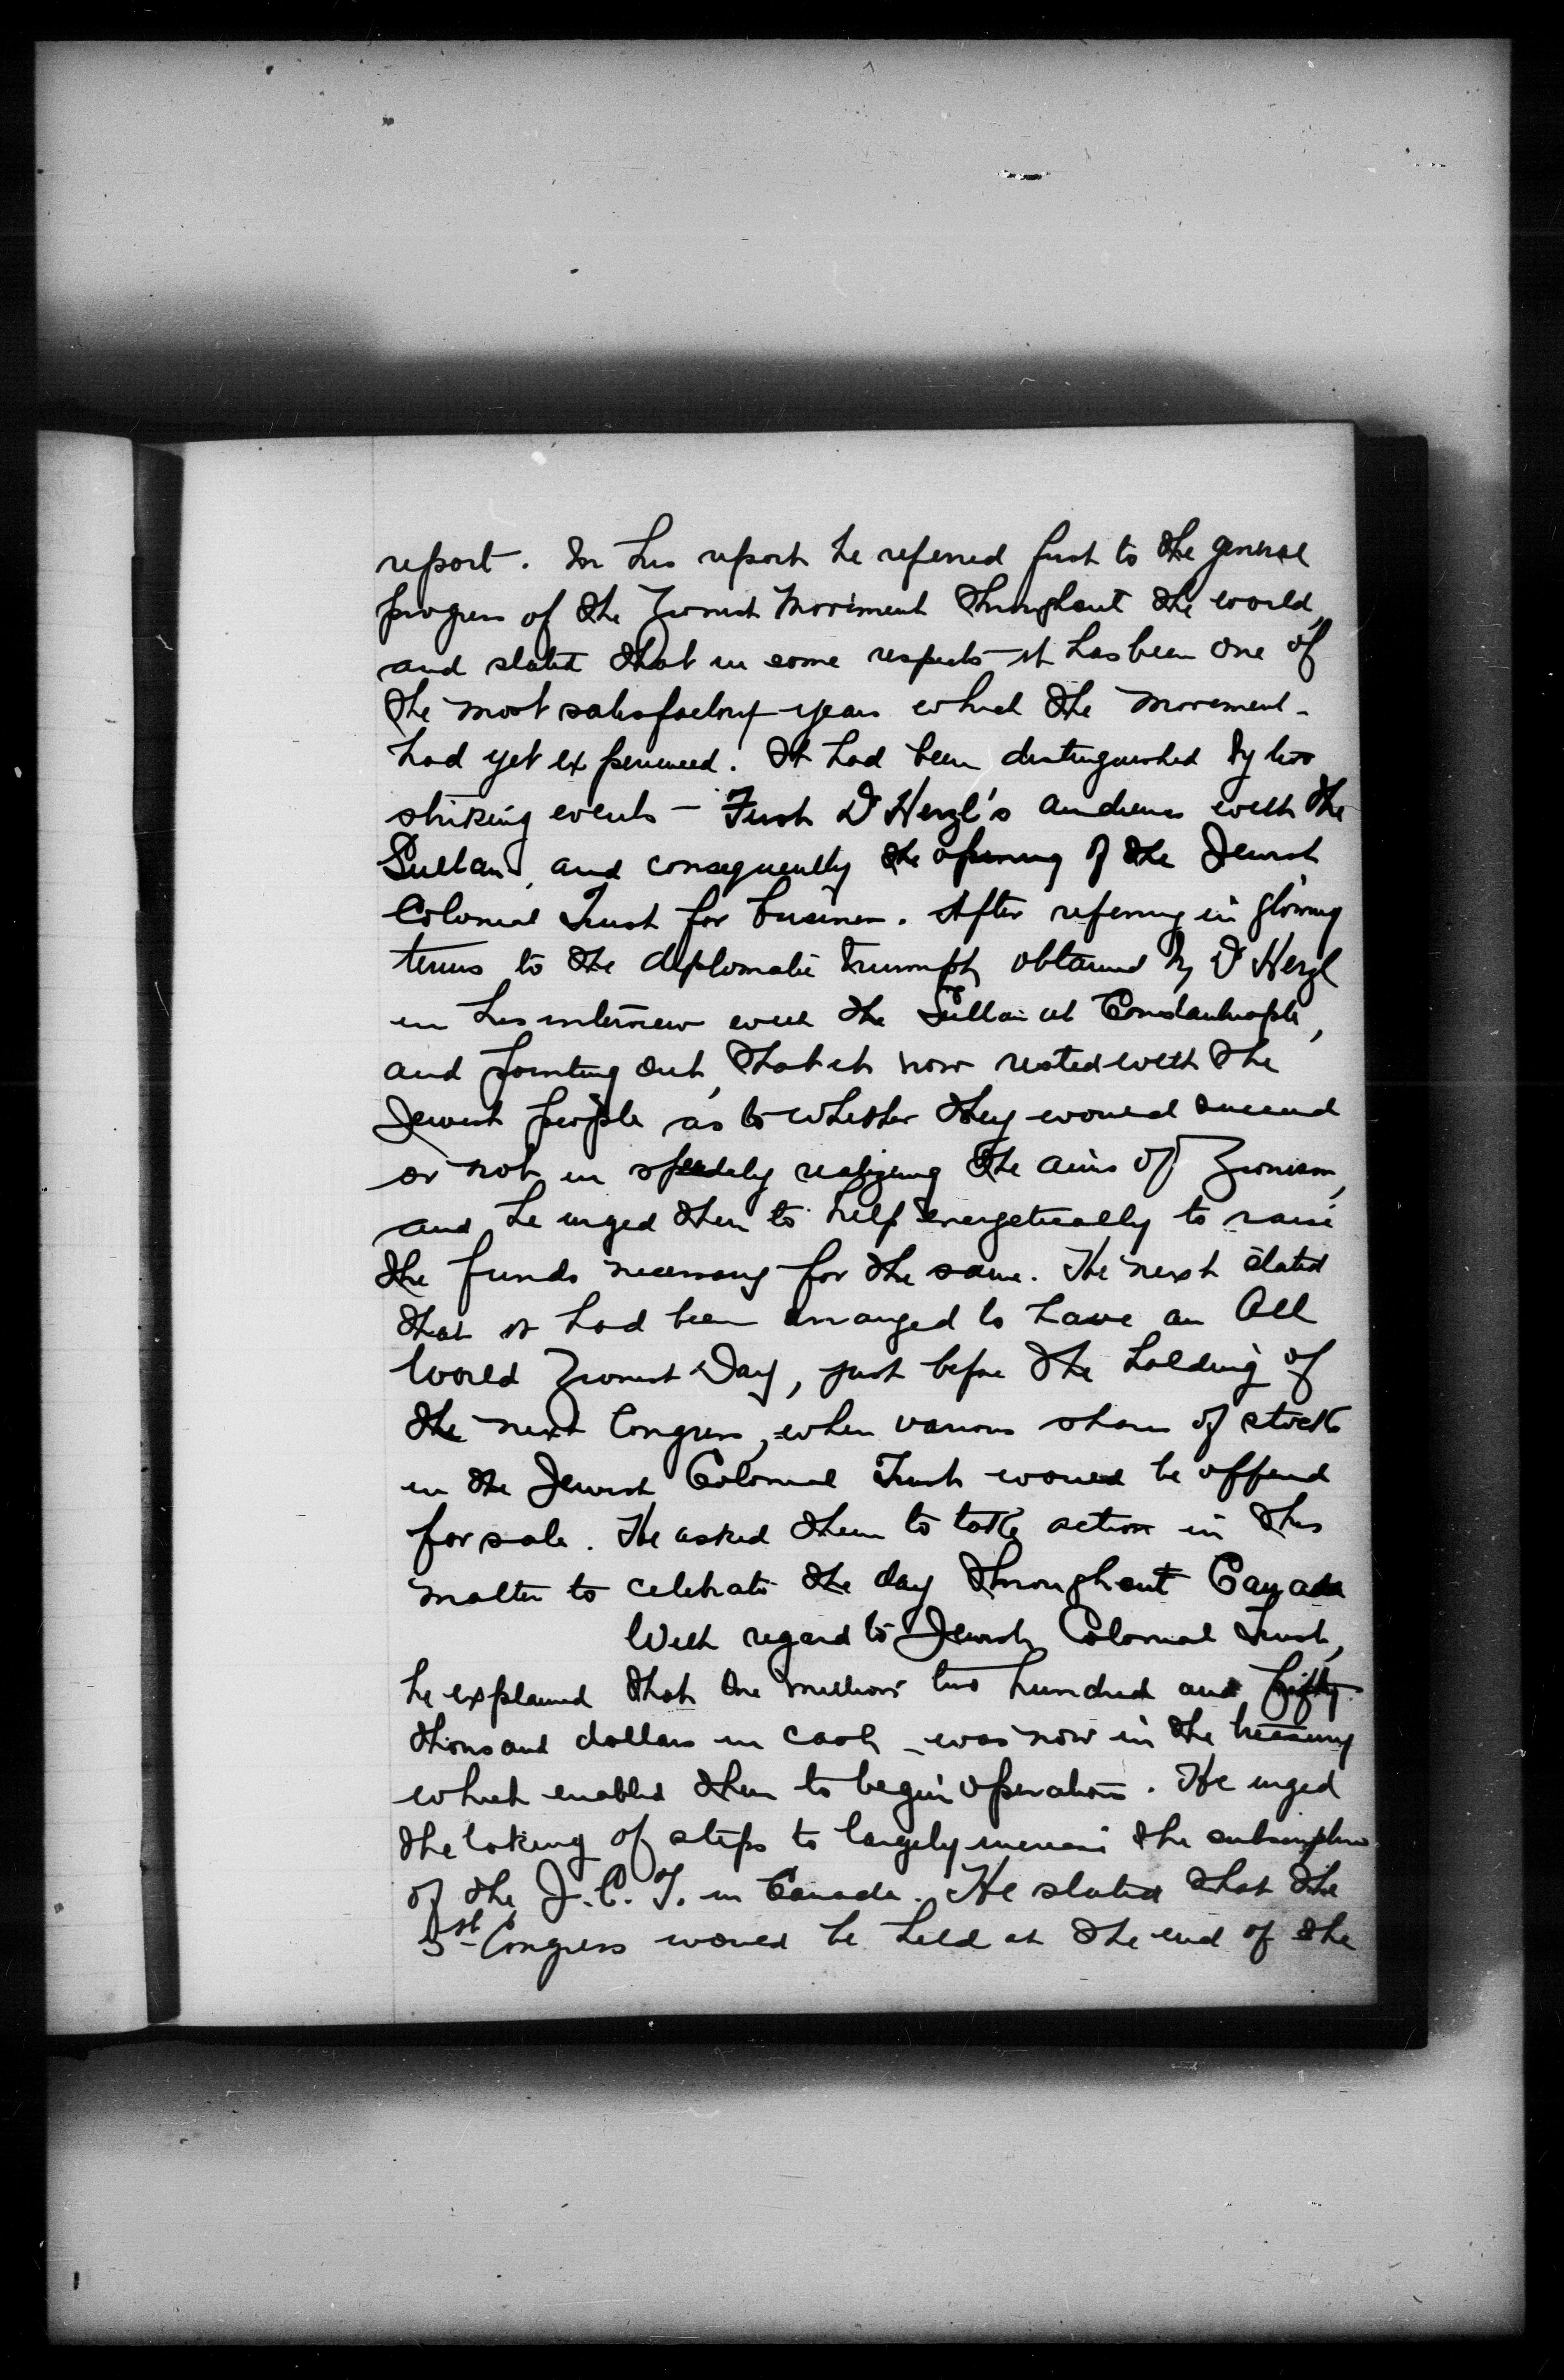 report. In his report he referred first to the general
progress of the Zionist Movement throughout the world,
and stated that in some respects it has been one of
the most satisfactory years which the movement
had yet experienced. It had been distinguished by two
striking events – First Dr Herzl's audience with the
Sultan, and consequently the opening of the Jewish
Colonial Trust for business. After referring in glowing
terms to the diplomatic triumph obtained by Dr Herzl
in his interview with the Sultan at Constantinople,
and pointing out, that it now rested with the
Jewish people as to whether they would succeed
or not in speedily realizing the aims of Zionism,
and he urged them to help energetically to raise
the funds necessary for the same. He next stated
that it had been arranged to have an All
World Zionist Day, just before the holding of
the next Congress, when various shares of stock
in the Jewish Colonial Trust would be offered
for sale. He asked them to take action in this
matter to celebrate the day throughout Canada
With regard to Jewish Colonial Trust,
he explained that one million two hundred and fifty
thousand dollars in cash – was now in the treasury
which enabled them to begin operations. He urged
the taking of steps to largely increase the subscription
of the J.C.T. in Canada. He stated that the
5st Congress would be held at the end of the